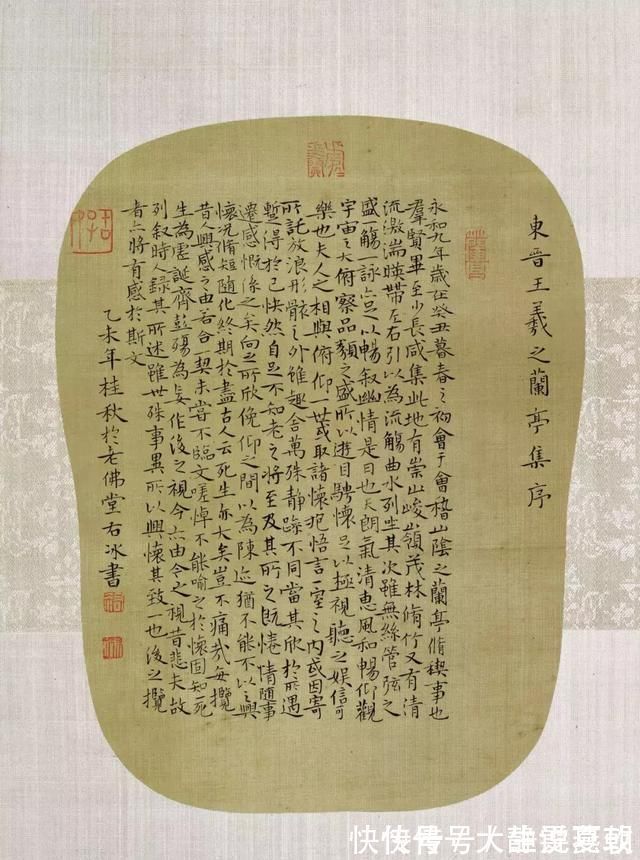 東晉王羲之蘭亭集序
永和九年歲在癸丑暮春之初會于會稽山陰之蘭亭脩稧事也
羣賢畢至少長咸集此地有崇山峻嶺茂林脩竹又有清
流激湍暎帶左右引以為流觴曲水列坐其次雖無絲管弦之
盛一觴一詠亦足以暢叙幽情是日也天朗氣清惠風和暢仰觀
宇宙之大俯察品類之盛所以遊目騁懷足以極視聽之娛信可
樂也夫人之相與俯仰一世或取諸懷抱悟言一室之内或因寄
所託放浪形骸之外雖趣舍萬殊静躁不同當其欣於所遇
蹔得於己怏然自足不知老之將至及其所之既惓情隨事
遷感慨係之矣向之所欣俛仰之間以為陳迹猶不能不以之興
懷况脩短隨化終期於盡古人云死生亦大矣豈不痛哉每攬
昔人興感之由若合一契未甞不臨文嗟悼不能喻之於懷固知一死
生為虛誕齊彭殤為妄作後之視今亦由今之視昔悲夫故
列叙時人録其所述雖世殊事異所以興懷其致一也後之攬
者亦將有感於斯文
乙未年桂秋於老佛堂右冰書